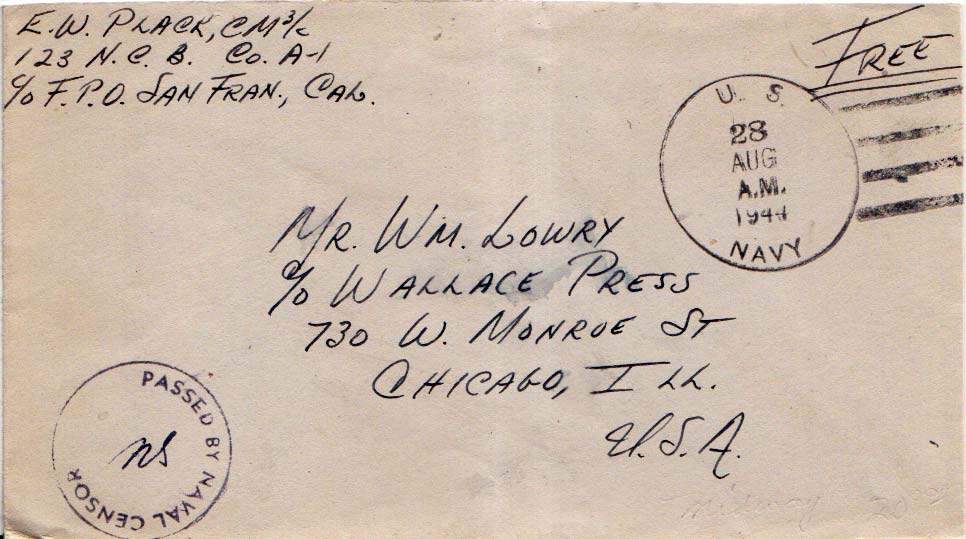 E.W. PLACK, CM 3/c
123 N.C.B. Co. A-1
c/o F.P.O. SAN FRAN., CAL.
FREE
U. S.
28
AUG
A.M.
1944
NAVY
MR. WM. LOWRY
c/o WALLACE PRESS
730 W. MONROE ST
CHICAGO, ILL.
U.S.A.
PASSED BY NAVAL CENSOR
midway 20